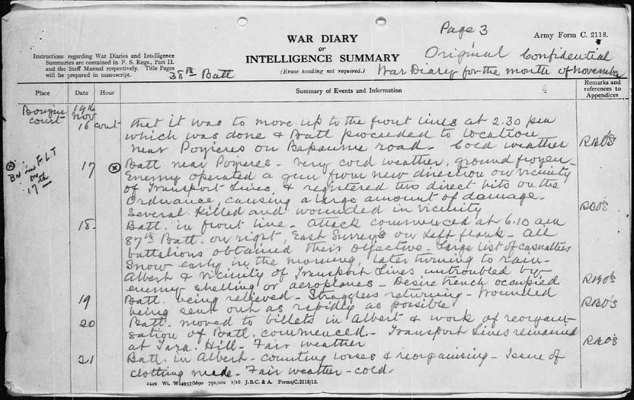 Page 3
Army Form C. 2118.
WAR DIARY
or
INTELLIGENCE SUMMARY
(Erase heading not required.)
Instructions regarding War Diaries and Intelligence
Summaries are contained in F. S. Regs., Part II.
and the Staff Manual respectively. Title Pages
will be prepared in manuscript.
38th Batt
Original Confidential
War Diary for the month of November
Place
Date
Hour
Summary of Events and Information
Remarks and
references to
Appendices
4
court
Nov
16 cont that it was to move up to the front lines at 2.30 pm
which was done & Batt proceeded to location
near Pozieres on Bapaume road. Cold weather
17 Batt near Pozieres - Very cold weather, ground frozen -
Enemy operated a gun from new direction on vicinity
of Transport Lines, & registered two direct hits on the
Ordnance, causing a large amount of damage -
Several killed and wounded in vicinity
17th
18. Batt. in front line - Attack commenced at 6.10 am
87th Batt. on right, East Surreys on left flank - All
battalions obtained their objective - Large list of casualties
Snow early in the morning, later turning to rain -
Albert & vicinity of Transport Lines untroubled by
enemy shelling or aeroplanes - Desire trench occupied
19 Batt. being relieved - Stragglers returning - Wounded
being sent out as rapidly as possible
20 Batt. moved to billets in Albert & work of reorgani-
sation of Batt. commenced - Transport Lines remained
at Tara Hill - Fair weather
21 Batt. in Albert - counting losses & reorganising - Issue of
clothing made - Fair weather - cold.